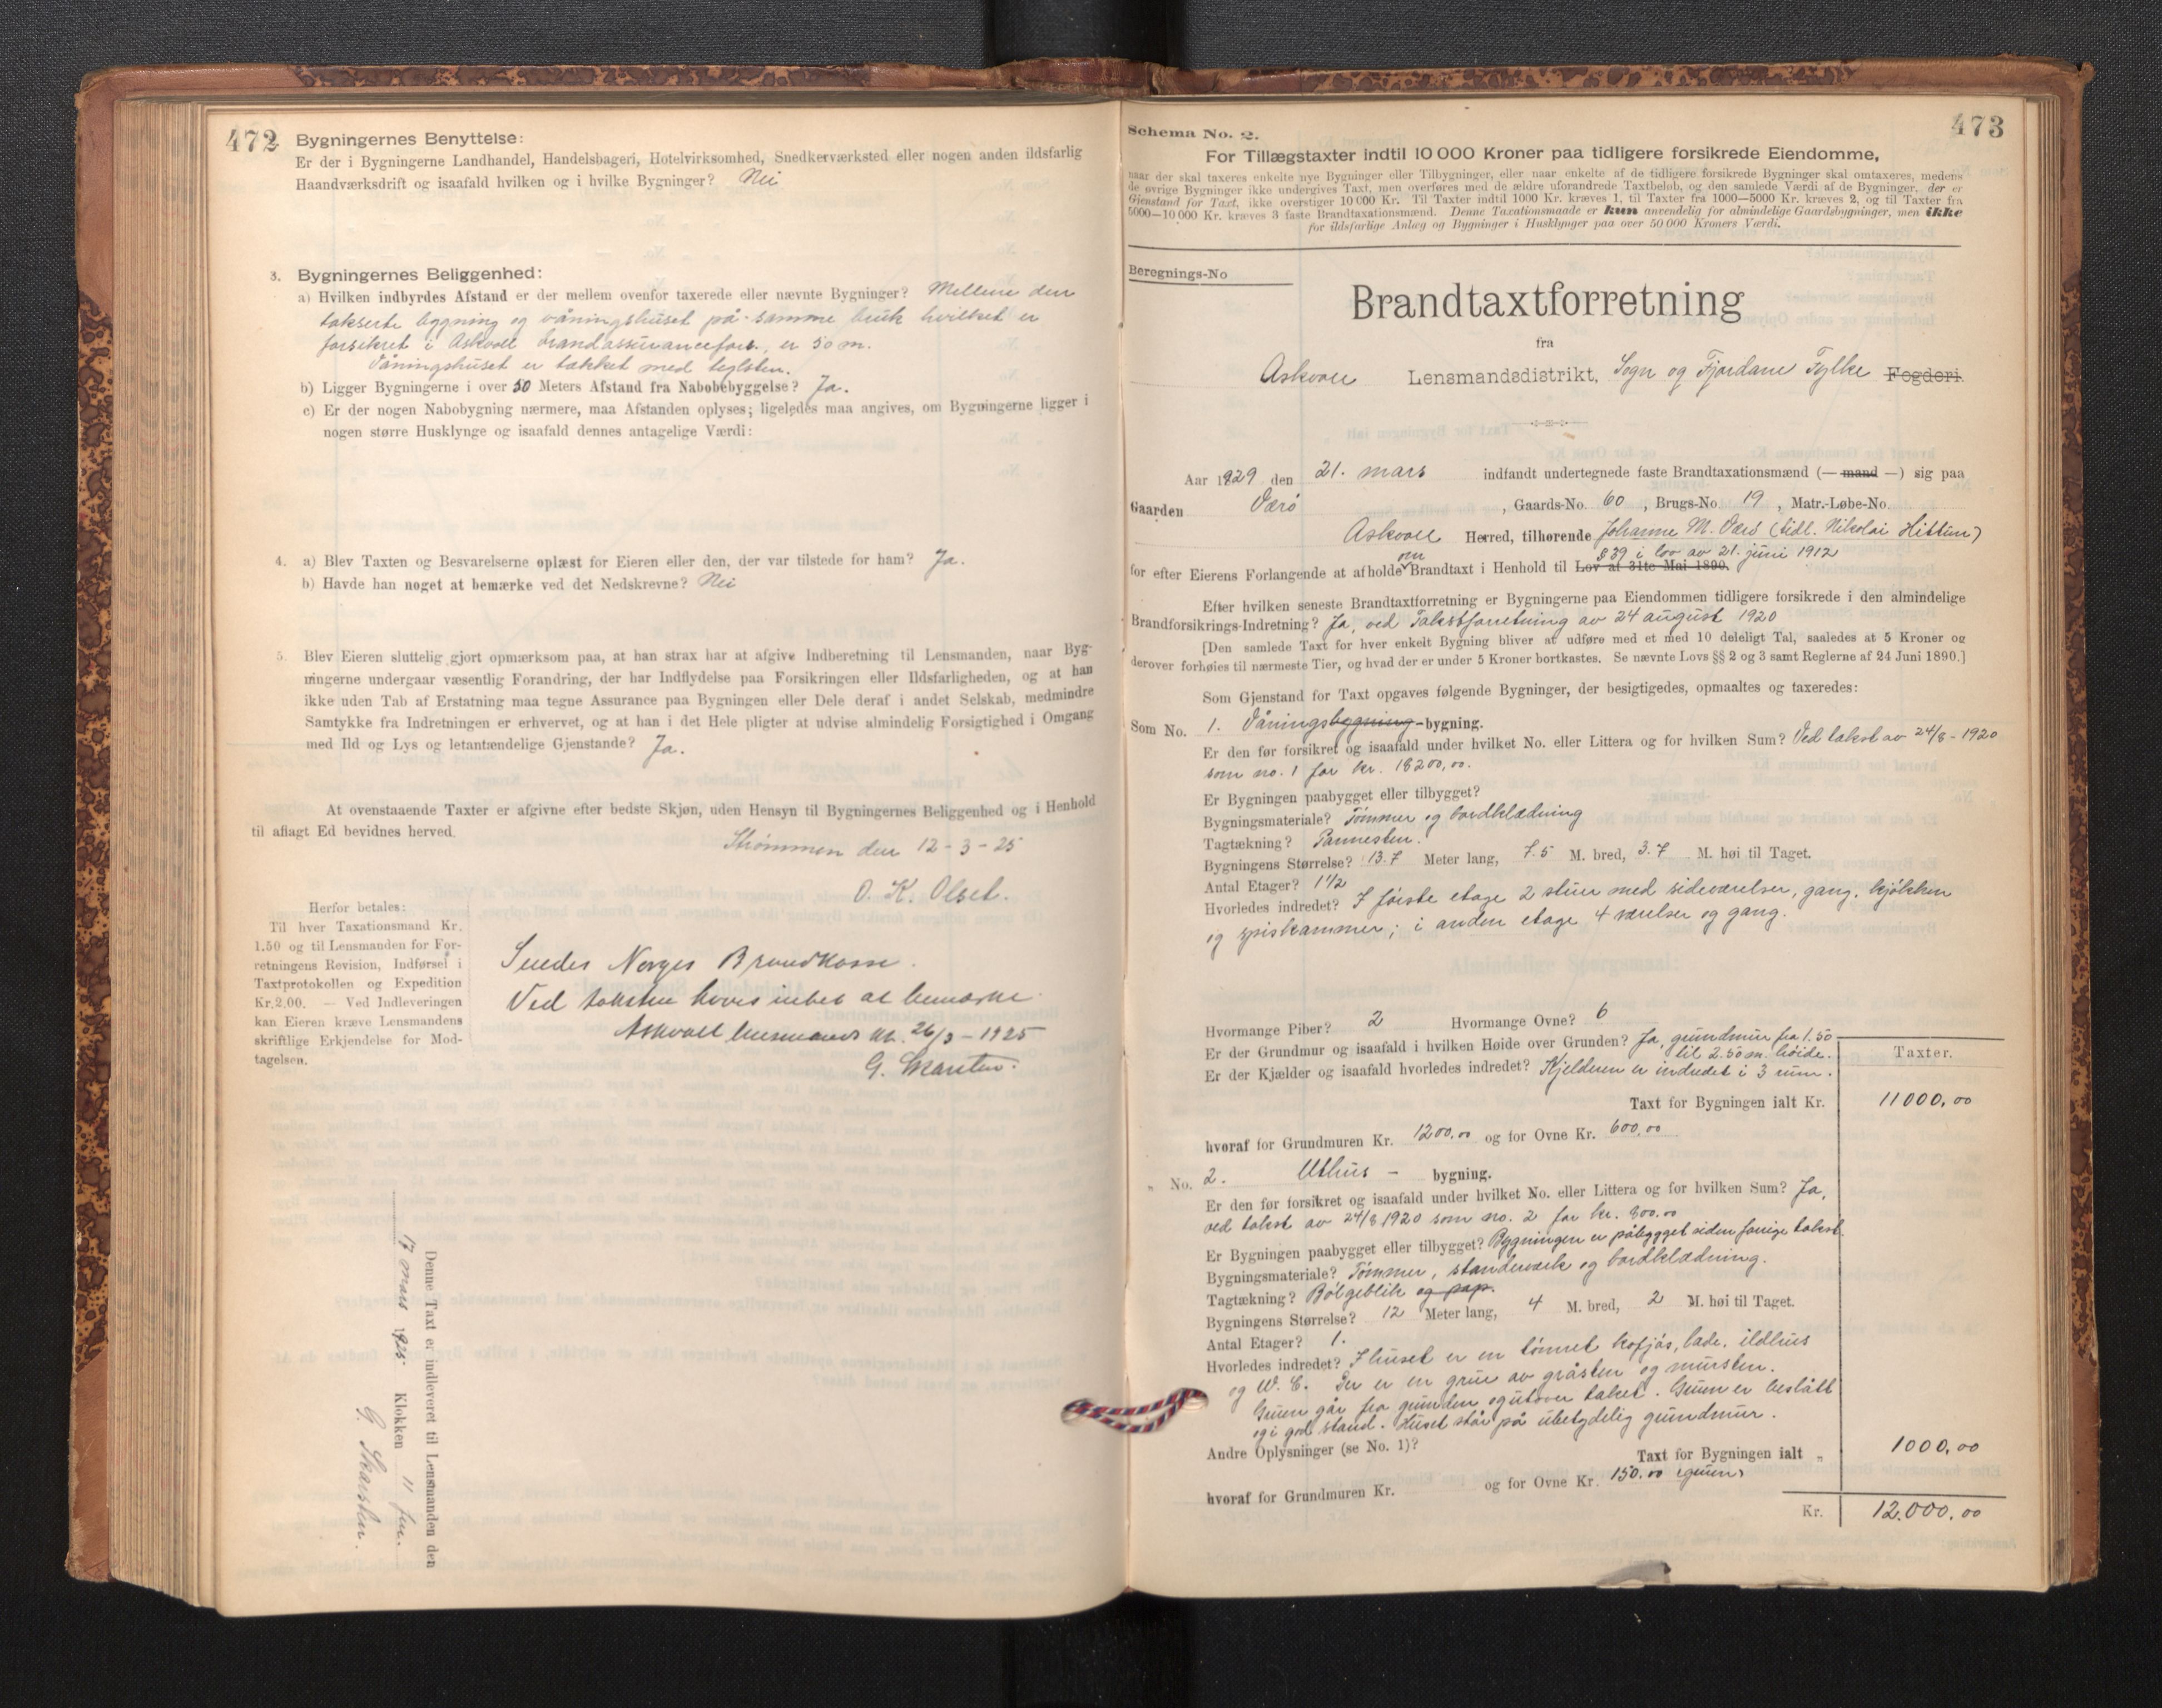 472
Bygningernes Benyttelse:
Er der i Bygningerne Landhandel, Handelsbageri, Hotelvirksomhed, Snedkerværksted eller nogen anden ildsfarlig
Haandværksdrift og isaafald hvilken og i hvilke Bygninger? Nei
3. Bygningernes Beliggenhed:
a) Hvilken indbyrdes Afstand er der mellem ovenfor taxerede eller nævnte Bygninger? Mellem den
takserte bygning og våningshuset på samme bruk hvilket er
forsikret i Askvoll brandassuranceforr., er 50 m.
Våningshuset er tækket med teglsten.
b) Ligger Bygningerne i over 50 Meters Afstand fra Nabobebyggelse? Ja.
c) Er der nogen Nabobygning nærmere, maa Afstanden oplyses; ligeledes maa angives, om Bygningerne ligger i
nogen større Husklynge og isaafald dennes antagelige Værdi:
4. a) Blev Taxten og Besvarelserne oplæst for Eieren eller den, der var tilstede for ham? Ja.
b) Havde han noget at bemærke ved det Nedskrevne? Nei
5. Blev Eieren sluttelig gjort opmærksom paa, at han strax har at afgive Indberetning til Lensmanden, naar Byg-
ningerne undergaar væsentlig Forandring, der har Indflydelse paa Forsikringen eller Ildsfarligheden, og at han
ikke uden Tab af Erstatning maa tegne Assurance paa Bygningen eller Dele deraf i andet Selskab, medmindre
Samtykke fra Indretningen er erhvervet, og at han i det Hele pligter at udvise almindelig Forsigtighed i Omgang
med Ild og Lys og letantændelige Gjenstande? Ja.
At ovenstaaende Taxter er afgivne efter bedste Skjøn, uden Hensyn til Bygningernes Beliggenhed og i Henhold
til aflagt Ed bevidnes herved.
Strömmen den 12-3-25
O. K. Olset.
Herfor betales:
Til hver Taxationsmand Kr.
1.50 og til Lensmanden for For-
retningens Revision, Indførsel i
Taxtprotokollen og Expedition
Kr.2.00. — Ved Indleveringen
kan Eieren kræve Lensmandens
skriftlige Erkjendelse for Mod-
tagelsen.
Sendes Norges Brandkasse.
Ved taksten haves intet at bemærke.
Askvoll lensmannsk. 26/3-1925
G. Skarsten.
Denne Taxt er indleveret til Lensmanden den
17 mars 1925 Klokken 11 fm.
G. Skarsten.
473
Schema No. 2.
For Tillægstaxter indtil 10 000 Kroner paa tidligere forsikrede Eiendomme,
naar der skal taxeres enkelte nye Bygninger eller Tilbygninger, eller naar enkelte af de tidligere forsikrede Bygninger skal omtaxeres, medens
de øvrige Bygninger ikke undergives Taxt, men overføres med de ældre uforandrede Taxtbeløb, og den samlede Værdi af de Bygninger, der er
Gjenstand for Taxt, ikke overstiger 10 000 Kr. Til Taxter indtil 1000 Kr. kræves 1, til Taxter fra 1000—5000 Kr. kræves 2, og til Taxter fra
5000—10 000 Kr. kræves 3 faste Brandtaxationsmænd. Denne Taxationsmaade er kun anvendelig for almindelige Gaardsbygninger, men ikke
for ildsfarlige Anlæg og Bygninger i Husklynger paa over 50 000 Kroners Værdi.
Beregnings-No
Brandtaxtforretning
fra
Askvoll Lensmandsdistrikt, Sogn og Fjordane Fylke Fogderi
Aar 1929 den 21. mars indfandt undertegnede faste Brandtaxationsmænd (— mand —) sig paa
Gaarden Værö, Gaards-No. 60, Brugs-No 19, Matr.-Løbe-No.
Askvoll Herred, tilhørende Johanne M. Værö (tidl. Nikolai Hittun)
om § 39 i lov av 21. juni 1912
for efter Eierens Forlangende at afholde Brandtaxt i Henhold til Lov af 31te Mai 1890.
Efter hvilken seneste Brandtaxtforretning er Bygningerne paa Eiendommen tidligere forsikrede i den almindelige
Brandforsikrings-Indretning? Ja, ved Takstforretning av 24 august 1920
[Den samlede Taxt for hver enkelt Bygning bliver at udføre med et med 10 deleligt Tal, saaledes at 5 Kroner og
derover forhøies til nærmeste Tier, og hvad der er under 5 Kroner bortkastes. Se nævnte Lovs §§ 2 og 3 samt Reglerne af 24 Juni 1890.]
Som Gjenstand for Taxt opgaves følgende Bygninger, der besigtigedes, opmaaltes og taxeredes:
Som No. 1. Våningsbygning-bygning.
Er den før forsikret og isaafald under hvilket No. eller Littera og for hvilken Sum? Ved takst av 24/8-1920
som no. 1 for kr. 18200,00.
Er Bygningen paabygget eller tilbygget?
Bygningsmateriale? Tömmer og bordklædning
Tagtækning? Pannesten.
Bygningens Størrelse? 13.7 Meter lang, 7.5 M. bred, 3.7 M. høi til Taget.
Antal Etager? 1 1/2
Hvorledes indredet? I förste etage 2 stuer med sideværelser, gang, kjökken
og spiskammer; i anden etage 4 værelser og gang.
Hvormange Piber? 2 Hvormange Ovne? 6
Er der Grundmur og isaafald i hvilken Høide over Grunden? Ja, grundmur fra 1.50
til 2.50 m. höide.
Er der Kjælder og isaafald hvorledes indredet? Kjelderen er indredet i 3 rum.
Taxter.
Taxt for Bygningen ialt Kr. 11000,00
hvoraf for Grundmuren Kr. 1200,00 og for Ovne Kr. 600,00
„ No. 2. Uthus - bygning.
Er den før forsikret og isaafald under hvilket No. eller Littera og for hvilken Sum? Ja,
ved takst av 24/8 1920 som no. 2 for kr. 800.00
Er Bygningen paabygget eller tilbygget? Bygningen er påbygget siden forrige takst.
Bygningsmateriale? Tömmer, standerværk og bordklædning.
Tagtækning? Bölgeblik og pap.
Bygningens Størrelse? 12 Meter lang, 4 M. bred, 2 M. høi til Taget.
Antal Etager? 1.
Hvorledes indredet? I huset er en tömret kofjös, lade, ildhus
og W. C. Der er en grue av gråsten og mursten.
Gruen går fra grunden og utover taket. Gruen er beslått
og i god stand. Huset står på ubetydelig grundmur.
Andre Oplysninger (se No. 1)?
Taxt for Bygningen ialt „ 1000,00
hvoraf for Grundmuren Kr. og for Ovne Kr. 150.00 (gruen)
Kr. 12.000,00